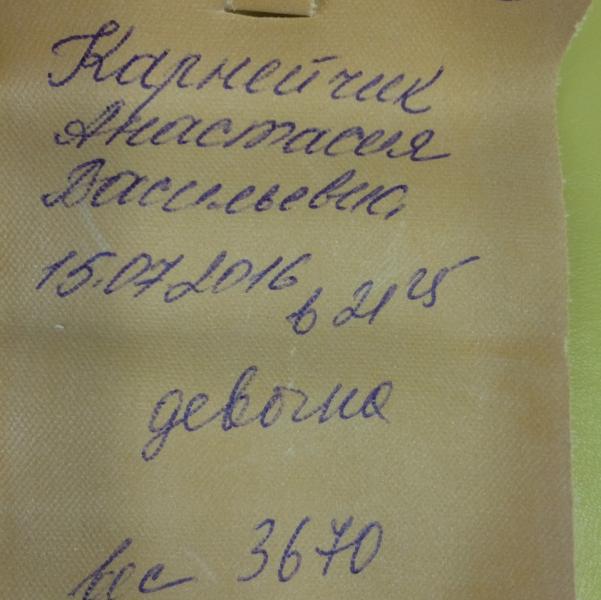 Карнейчик
Анастасия
Васильевна
15.07.2016 в 21 25
девочка
вес 3670